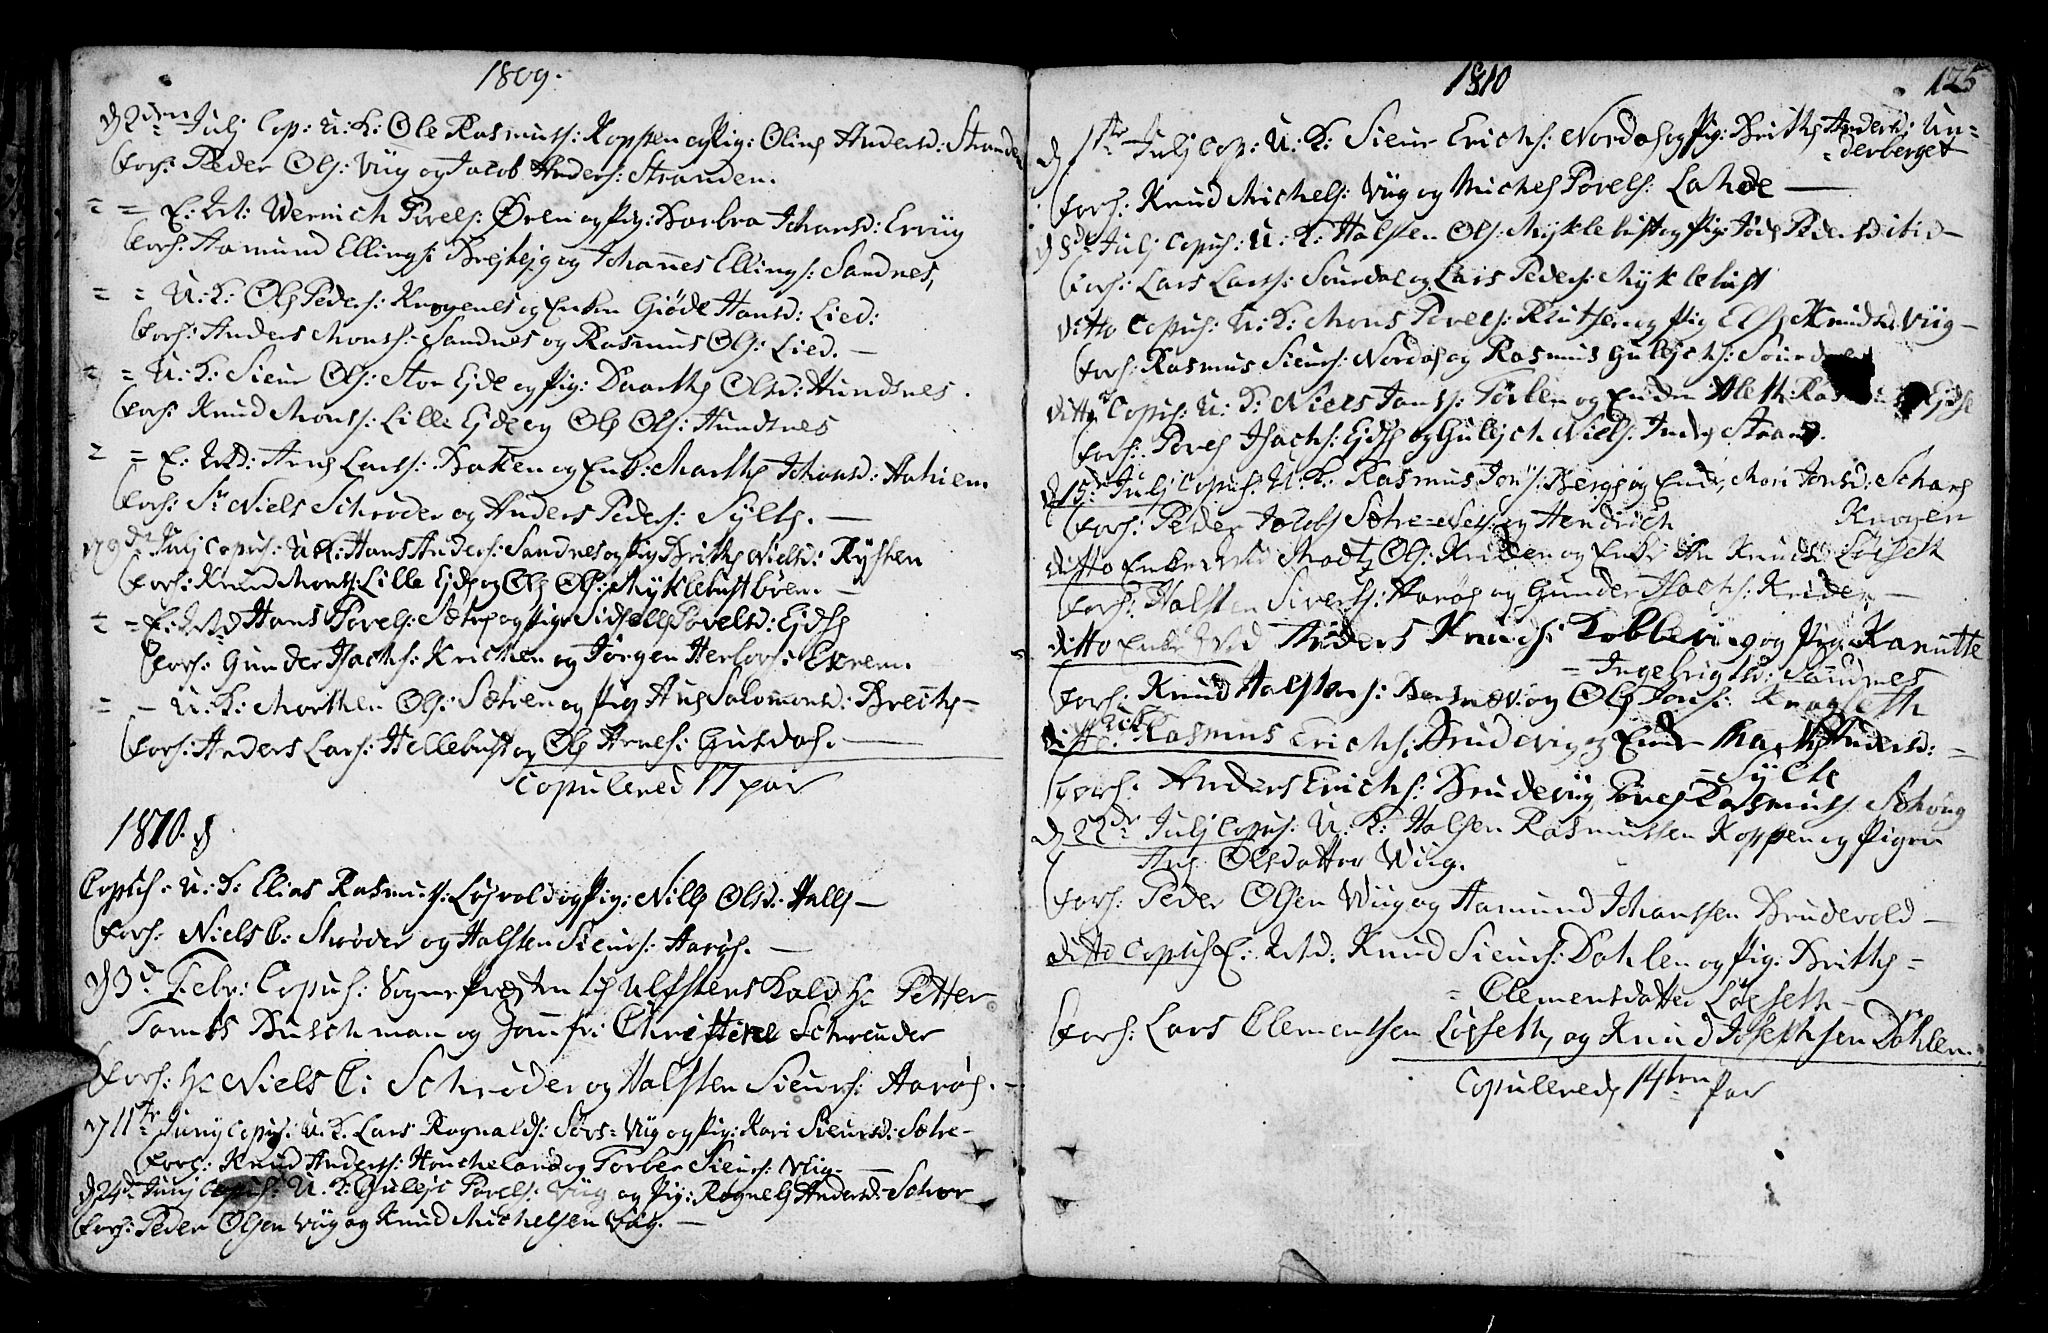 1809.
d 2den Julj Cop: U: K: Ole Rasmuss: Koppen og Pig: Oline Andersd: Stranden
Forl: Peder Ols: Viig og Jacob Anders: Stranden.
= = E: Md: Wernich Povels: Øren og Pig: Barbra Johansd: Erviig
Forl: Aamund Ellings: Brejvig og Johannes Ellings: Sandnes,
= = U: K: Ole Peders: Knoenes og Enken Giøde Hansd: Lied:
Forl: Anders Monss: Sandnes og Rasmus Ols: Lied. —
= = U: K: Siver Ols: Stor Ejde og Pig: Marthe Olsd: Hundsnes.
Forl: Knud Monss: Lille Ejde og Ole Ols: Hundsnes
= = E: Md: Arne Larss: Bakken og Enk: Marthe Johansd:
Forl: Sr Niels Schrøder og Anders Peders: Sylte. —
d 9de Julj Copul: U: K: Hans Anders: Sandnes og Pig Brithe Nielsd: Rysten
Forl: Knud Monss: Lille Ejde og Ole Ols: Myklebust bøen. —
= = E: Md Hans Povels: Sætre og Pige Sidselle Povelsd: Ejde
Forl: Gunder Isachs: Kriken og Jørgen Herlofs: Exrem.
= - U: K: Morthen Ols: Sætren og Pig Ane Salomonsd: Breche —
Forl: Anders Lars: Hellebust og Ole Arnes: Gusdal. —
Copulered 17 par
1810. d
Copul: U: K: Elias Rasmuss: Løsvold og Pig: Nille Olsd: Halle —
Forl: Niels C: Schrøder og Halsten Sivers: Aarøe. —
d 3d Febr: Copul: Sogne Præsten til Ulfstens Kald Hr Petter
Tomes Buschman og Jomfr: Christine Schreuder
Forl: Hr Niels C: Schrøder og Halsten Sivers: Aarøe. —
d 11te Junj Copul: U: K: Lars Rognalds: Sørs-Viig og Pig: Kari Siversd: Sætre —
Forl: Knud Anderss: Houcheland og Torber Sivers: Viig. —
d 24d Junj Copul: U: K: Gulejc Povels: Viig og Pig: Rognele Andersd: Sætre
Forl: Peder Olsen Viig og Knud Michelsen Viig. —
1810
125
d 1ste Julj Cop: U: K: Siver Erichs: Nordal og Pig: Brithe Andersd: Un=
=derberget
Forl: Knud Michels: Viig og Michel Povels: Lahde —
d 8de Julj Copul: U: K: Halsten Ols: Myklebust og Pig: Jøde Pedersd ibid —
Forl: Lars Larss: Sourdal og Lars Peders: Myklebust
ditto Copul: U: K: Mons Povels: Rutsen og Pig Else Knudsd. Viig —
Forl: Rasmus Sivers: Nordal og Rasmus Gulejchs:
ditto Copul: U: K: Niels Jans: Torlen og Enken Aleth: Ejde
Forl: Povel Isachs: Ejde og Gulejch Niels: Indre Strand.
d 15de Julj Copul: U: K: Rasmus Jons: Berge og Enke, Mari Jonsd: Schare
Forl: Peder Jacobs Sætre og Hendrich Knogen
ditto Enke Md Madtz Ols: Kriken og Enke An Knudsd: Løseth
Forl: Halsten Siverss: Aarøe og Gunder Isachs: Kriken —
ditto Enke Md Anders Knuds: Koblevig og Pig Kanutte
= Ingebrigtsd: Sandnes
Forl: Knud Halstens: og Ole Jons: Knogseth
ditto Rasmus Erichs: Brudevig og Enke Marthe Andersd: —
= Sylte
Forl: Anders Erichs: Brudeviig Povel Rasmuss:
d 22de Julj Copul: U: K: Halsten Rasmussen Koppen og Pigen
Ane Olsdatter Wiig.
Forl: Peder Olsen Wiig og Aamund Johanssen Brudevold —
ditto Copul: E: Md: Knud Sivers: Dahlen og Pig: Brithe =
= Clementsdatter Løsseth —
Forl: Lars Clementsen Løsseth, og Knud Josephsen Dahlen.
Copulerede 14ten Par